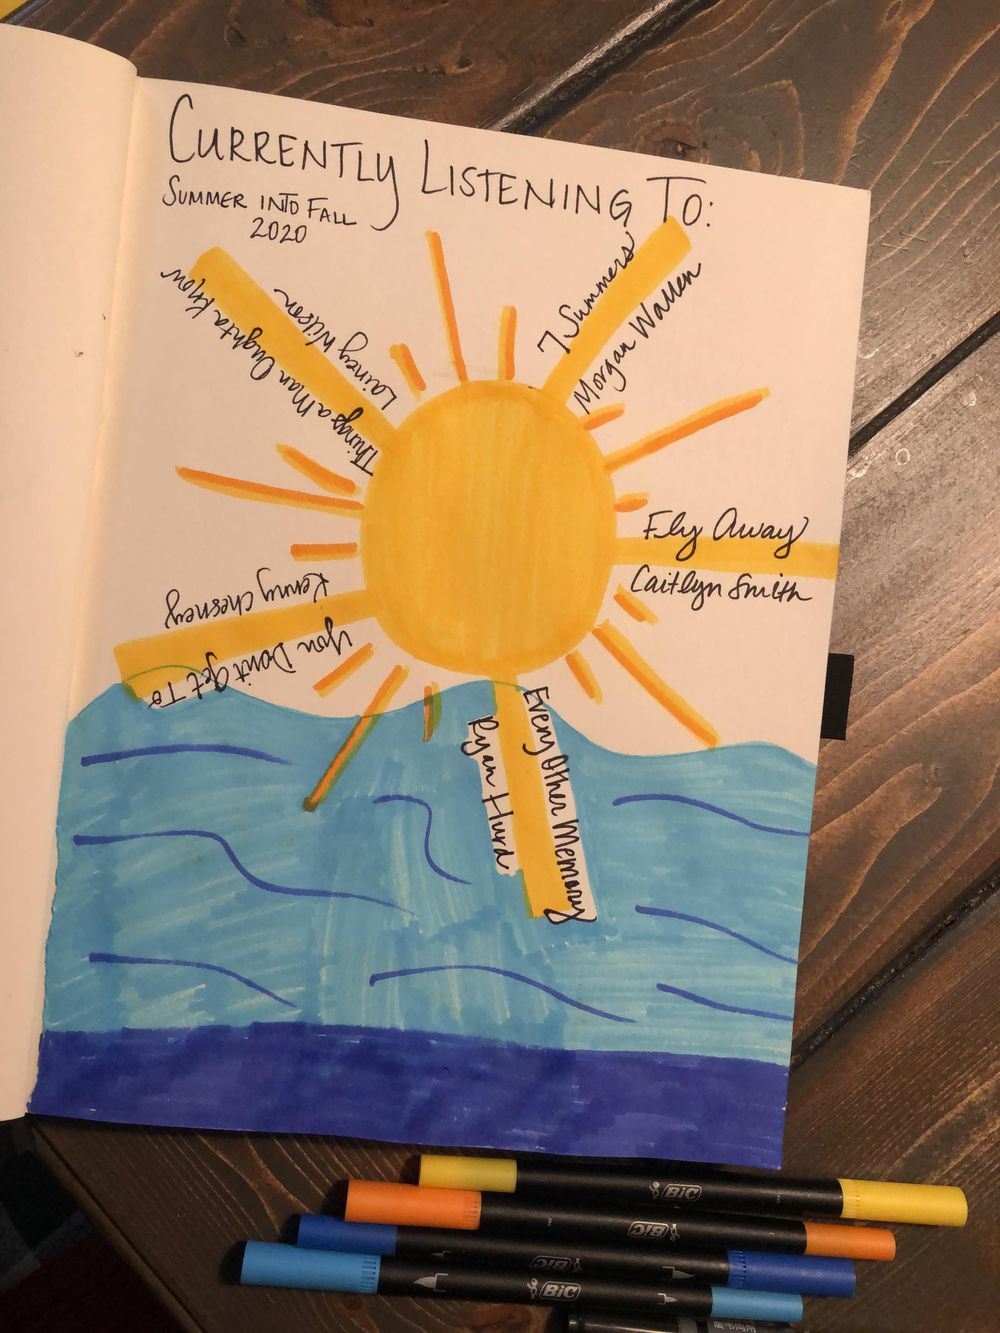 CURRENTLY LISTENING TO:
SUMMER INTO FALL
2020
7 Summers
Morgan Wallen
Fly Away
Caitlyn Smith
Every Other Memory
Ryan Hurd
You Don't Get To
Kenny Chesney
Things a Man Oughta Know
Lainey Wilson
BIC
BIC
BIC
BIC